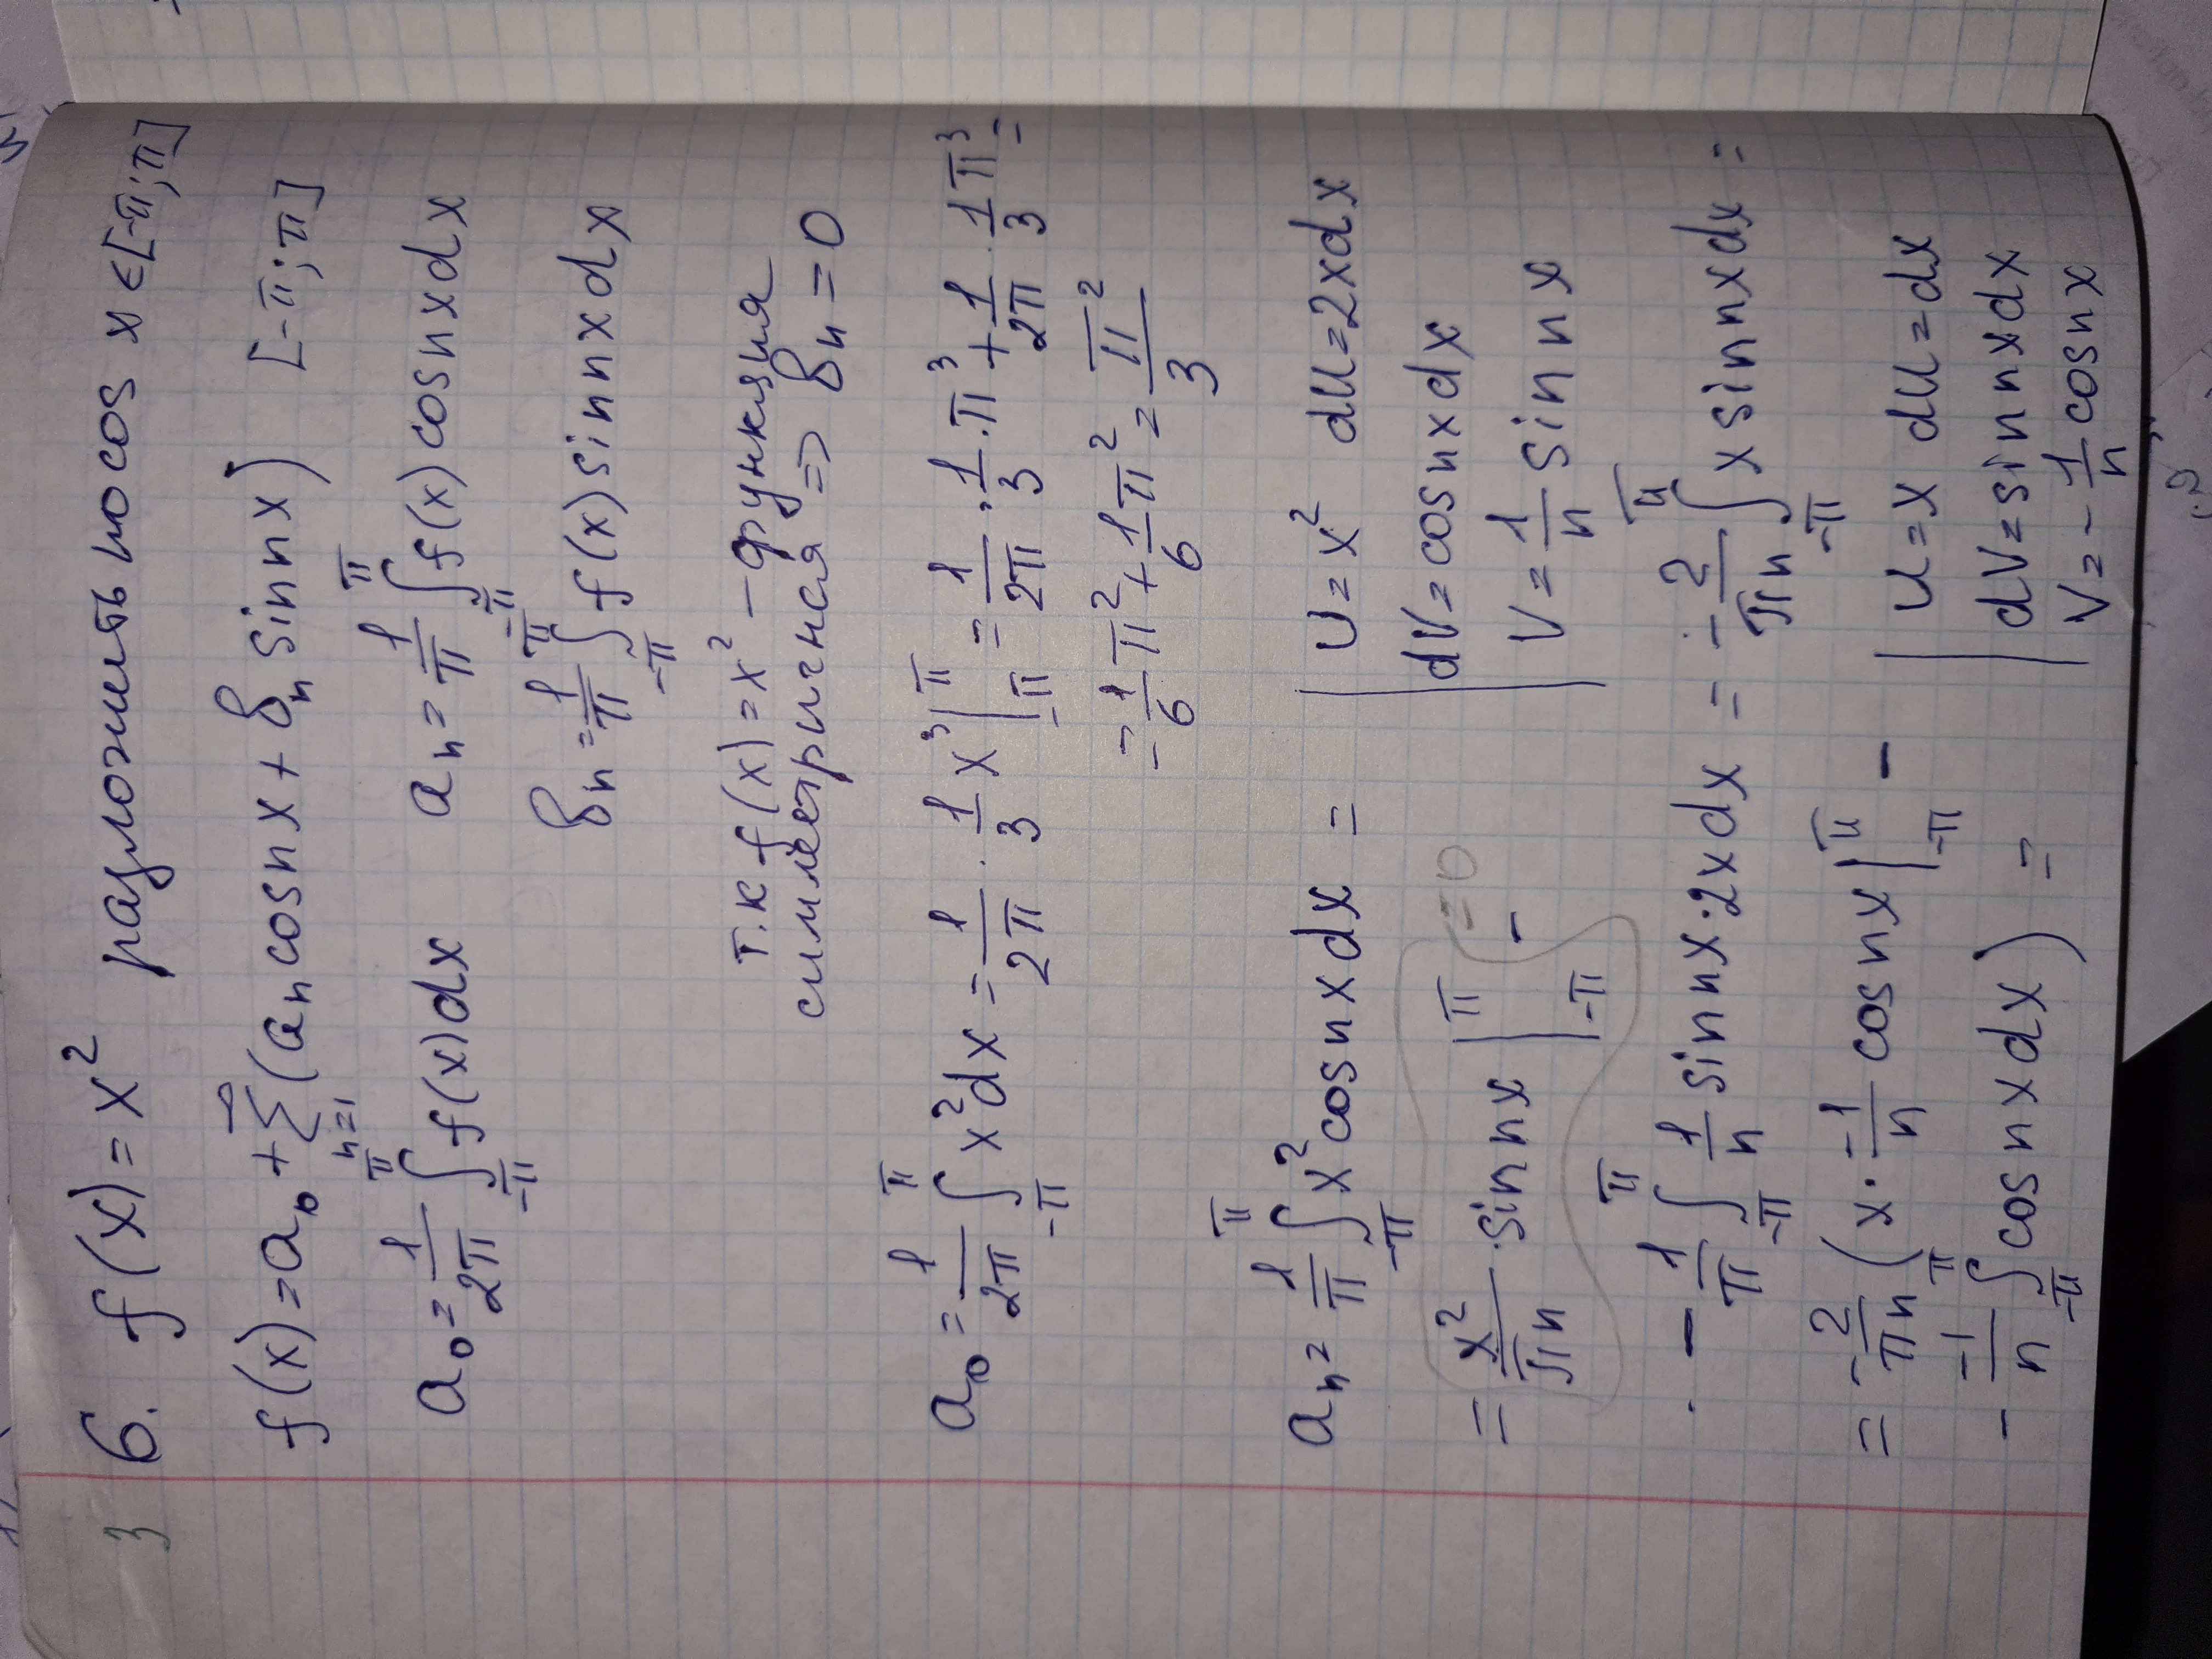 3 6. f(x) = x² разложить по cos x ∈ [-π; π]
f(x) = a₀ + ∑_{n=1}^{∞} (aₙ cos nx + bₙ sin nx) [-π; π]
a₀ = 1/2π ∫_{-π}^{π} f(x) dx aₙ = 1/π ∫_{-π}^{π} f(x) cos nx dx
bₙ = 1/π ∫_{-π}^{π} f(x) sin nx dx
т.к f(x) = x² – функция
симметричная => bₙ = 0
a₀ = 1/2π ∫_{-π}^{π} x² dx = 1/2π · 1/3 x³ |_{-π}^{π} = 1/2π · 1/3 · π³ + 1/2π · 1/3 π³ =
= 1/6 π² + 1/6 π² = π²/3
aₙ = 1/π ∫_{-π}^{π} x² cos nx dx = | U = x² du = 2x dx
dV = cos nx dx
= x²/πn · sin nx |_{-π}^{π} – = 0
V = 1/n sin nx
– 1/π ∫_{-π}^{π} 1/n sin nx · 2x dx = – 2/πn ∫_{-π}^{π} x sin nx dx =
= – 2/πn (x · -1/n cos nx |_{-π}^{π} – | u = x du = dx
– -1/n ∫_{-π}^{π} cos nx dx) = dV = sin nx dx
V = – 1/n cos nx